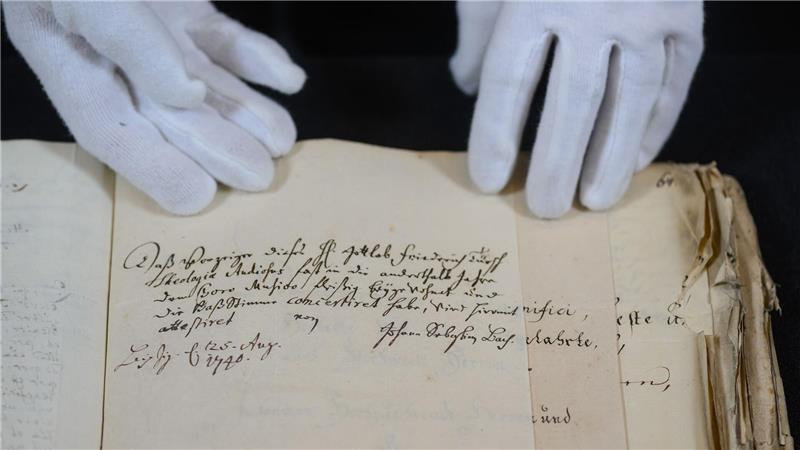 Daß Vorzeiger dieses H. Gottlob Friedrich Türpf
Theologiæ Studiosus fast in die anderthalb Jahre
dem Choro Musico fleißig beygewohnet und
die Baß Stimme concertiret habe, wird hiermit
attestiret von
Johann Sebastian Bach.
Leipzig. d. 25. Aug.
1740.
64
nifici,
este
und